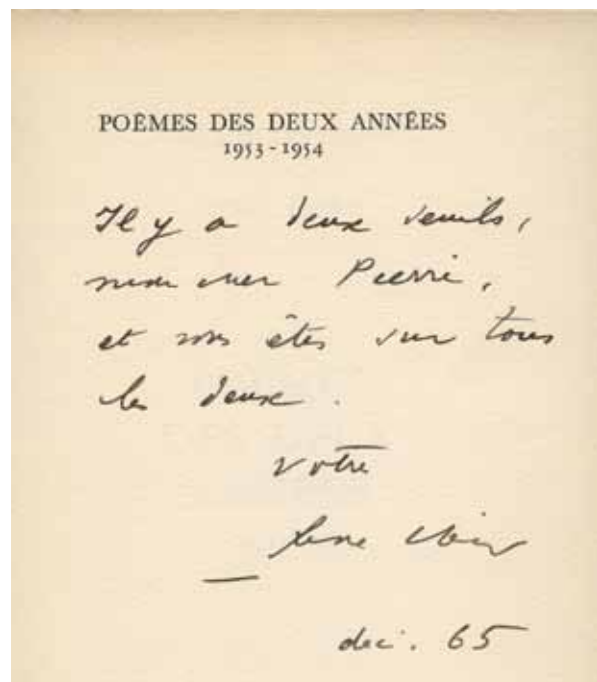 POÈMES DES DEUX ANNÉES
1953-1954
Il y a deux seuils,
mon cher Pierre,
et vous êtes sur tous
les deux.
Votre
René Char
déc. 65